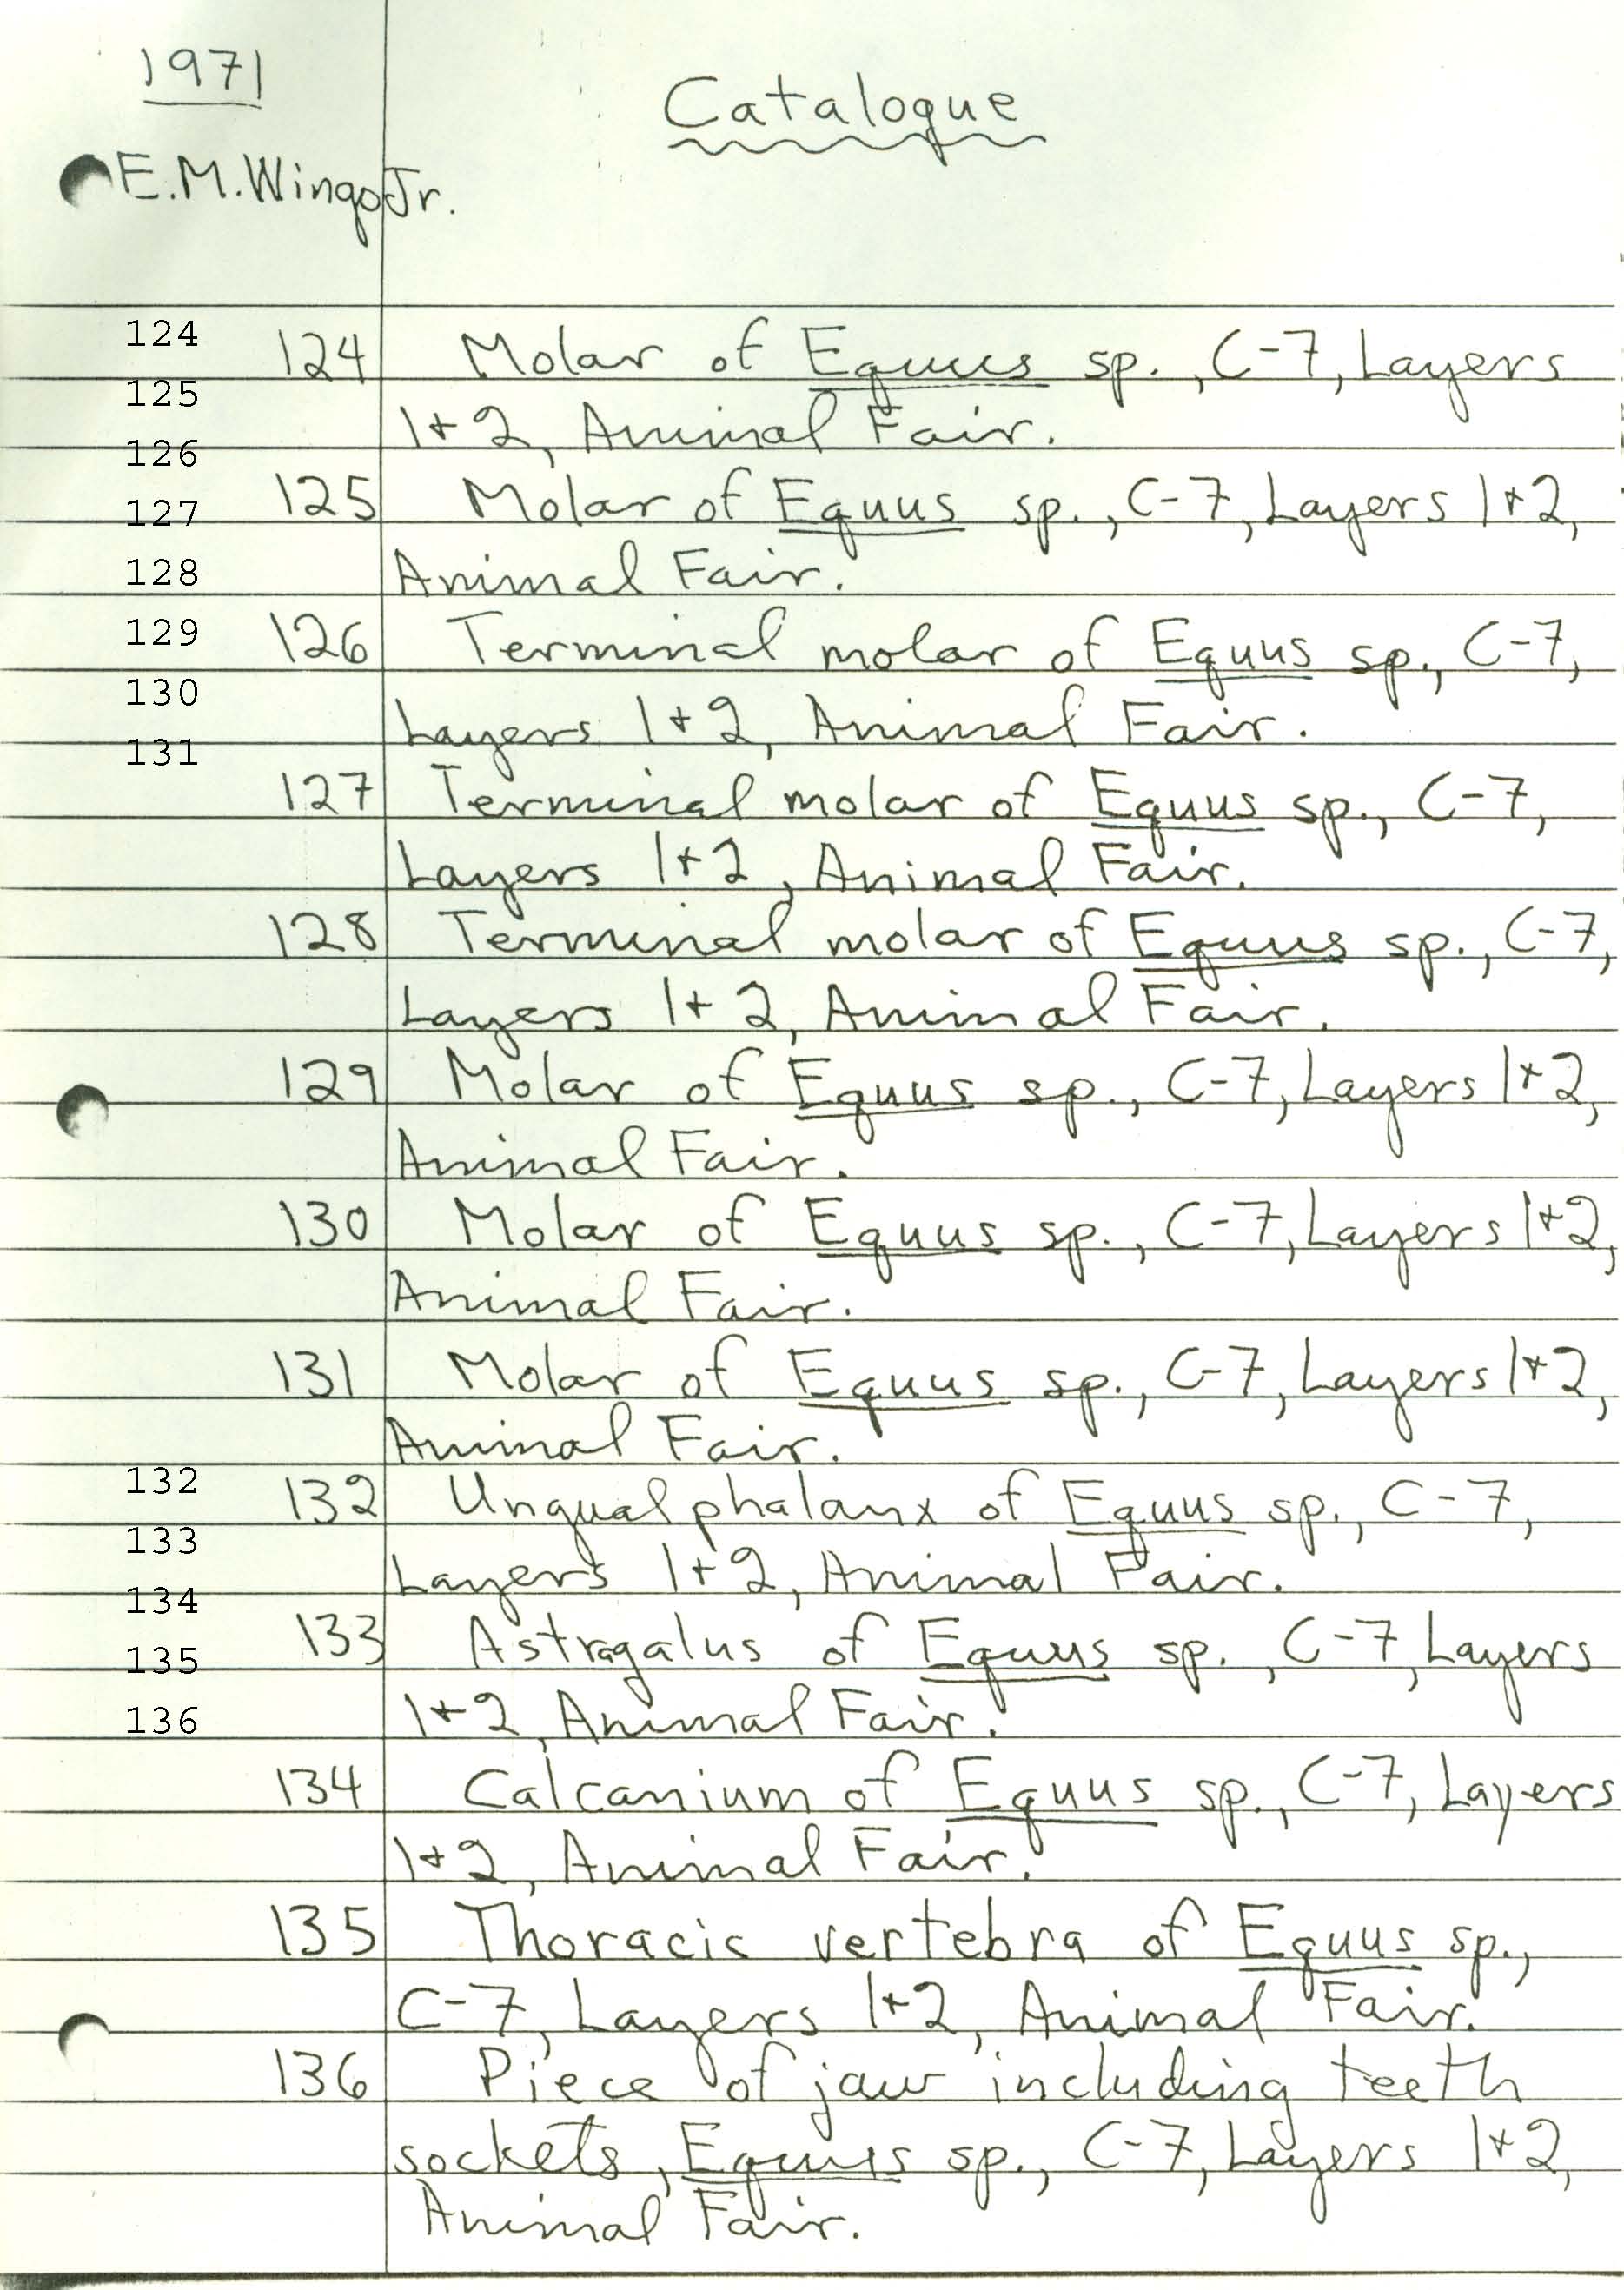 1971
Catalogue
E.M. Wingo Jr.
124 124 Molar of Equus sp., C-7, Layers
125
1+2, Animal Fair.
126
127 125 Molar of Equus sp., C-7, Layers 1+2,
128 Animal Fair.
129 126 Terminal molar of Equus sp., C-7,
130
Layers 1+2, Animal Fair.
131
127 Terminal molar of Equus sp., C-7,
Layers 1+2, Animal Fair.
128 Terminal molar of Equus sp., C-7,
Layers 1+2, Animal Fair.
129 Molar of Equus sp., C-7, Layers 1+2,
Animal Fair.
130 Molar of Equus sp., C-7, Layers 1+2,
Animal Fair.
131 Molar of Equus sp., C-7, Layers 1+2,
Animal Fair.
132 132 Ungual phalanx of Equus sp., C-7,
133
Layers 1+2, Animal Fair.
134
133 Astragalus of Equus sp., C-7, Layers
135
136 1+2, Animal Fair.
134 Calcanium of Equus sp., C-7, Layers
1+2, Animal Fair.
135 Thoracic vertebra of Equus sp.,
C-7, Layers 1+2, Animal Fair.
136 Piece of jaw including teeth
sockets, Equus sp., C-7, Layers 1+2,
Animal Fair.